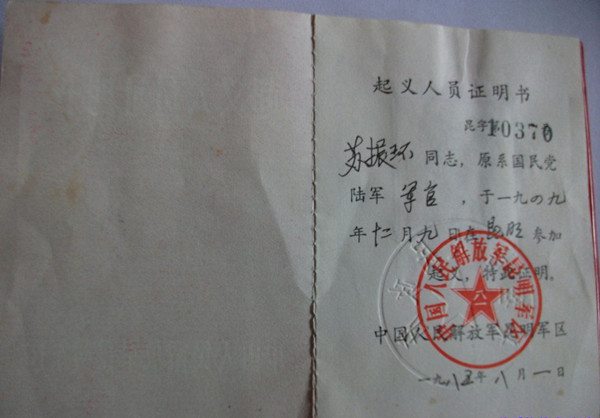 起义人员证明书
昆字第10370
苏振环同志，原系国民党
陆军 军官，于一九四九
年十二月九日在昆明参加
起义，特此证明。
中国人民解放军昆明军区
一九八五年八月一日